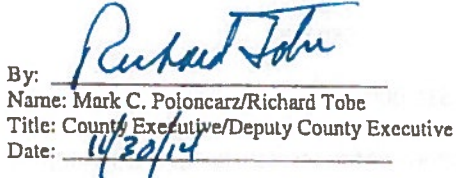 By: Richard Tobe
Name: Mark C. Poloncarz/Richard Tobe
Title: County Executive/Deputy County Executive
Date: 11/30/14